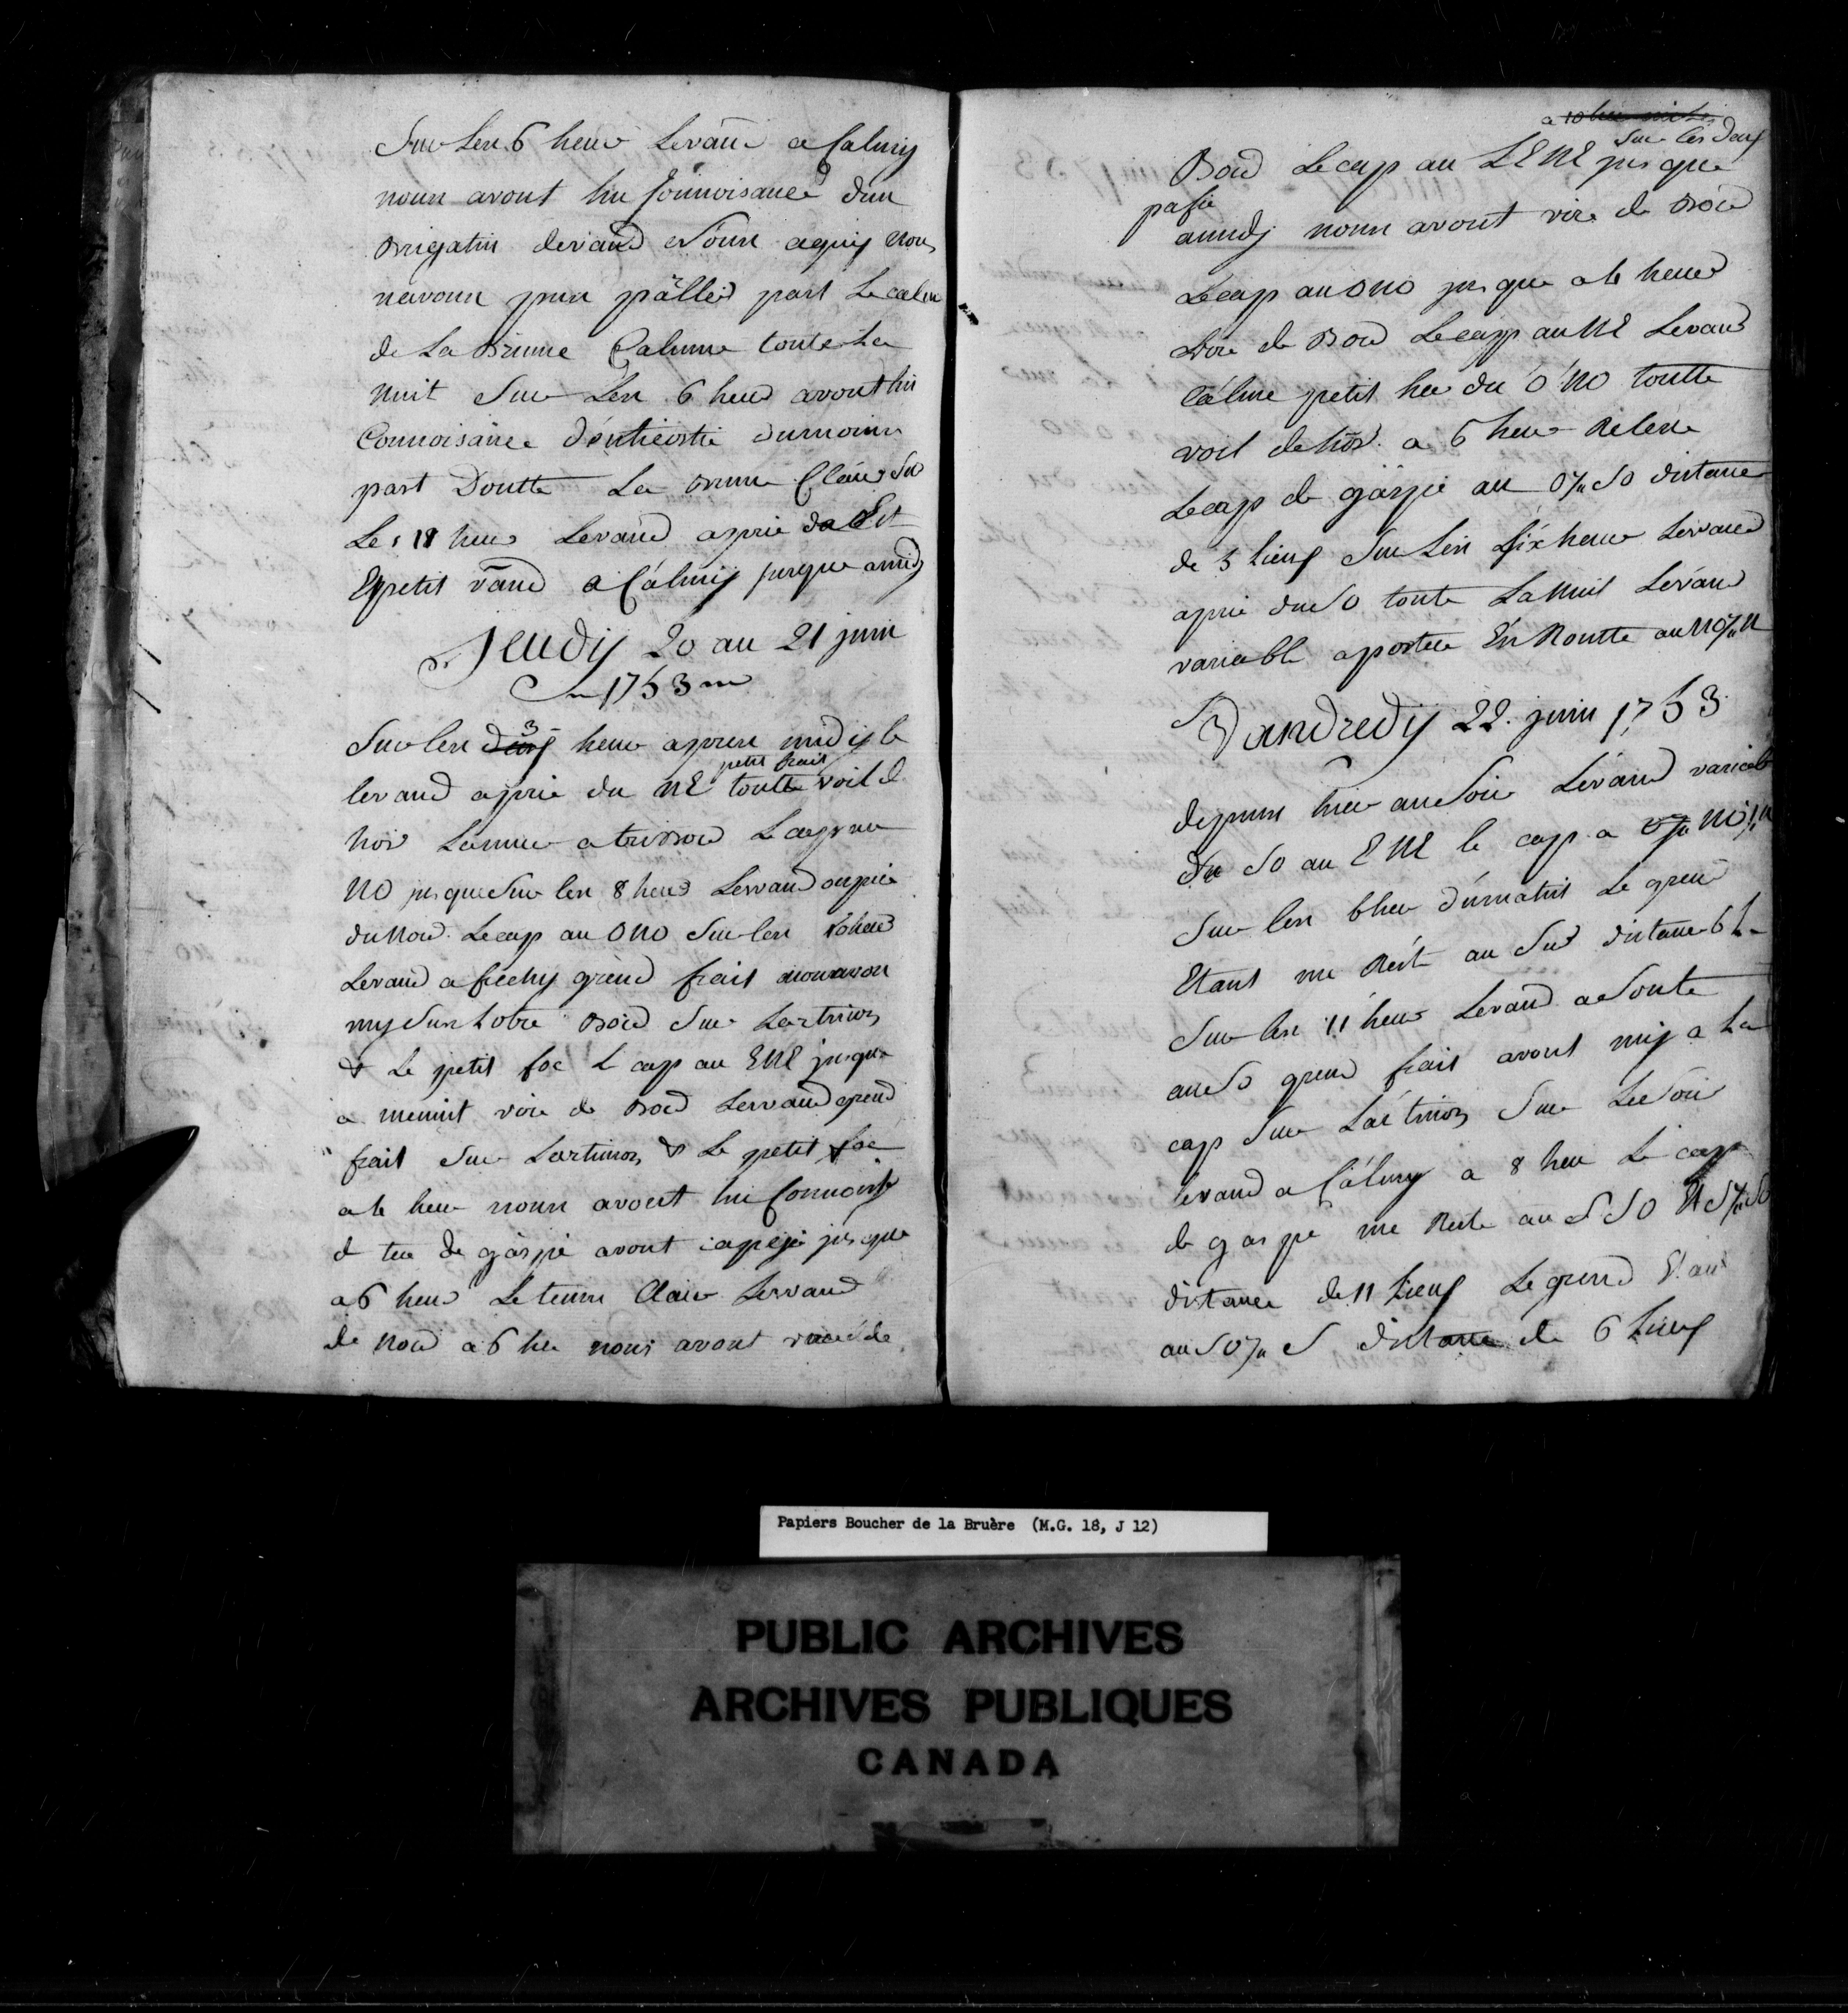 Sur les 6 heure Levand a Calmy
nous avont hu Connoisance d'un
Brigatin devand nous aquy nous
navons pus pàller part Le calme
de La Brume Calmme toute La
nuit Sur Les 6 heur avont hu
Connoisance d'enticostie dumoins
part Doutte La brume Claire Sur
Les 18 heur Levand aprie de Est
Et petit vand a Càlmy jusque amidy
Jeudy 20 au 21 juin
1753
Sur les 3 heur apres midy le
petit frait
levand aprie du NE toutte voil d
hor Lamure a tribord Le cap au
NO jusque Sur les 8 heur Levand aprie
du Nord Le cap au ONO Sur les 10 heur
Levand a frechy grend frait nous avon
my Sur Lotre Bord Sur Lartimon
& Le petit foc L cap au ENE jusqua
a menuit vire de Bord Levand grend
frait Sur Lartimon & Le petit foc
a 4 heur nous avont hu Connoise
d tere de gàspé avont capejé jusque
a 6 heur Le temm Claire Levand
de Nord a 6 heu nous avont viré de
a 10 heur
Sur les deux
Bord Le cap au LENE jusque
pasée
amidj nous avont vire de Bord
Le cap au ONO jusque a 4 heur
vire de Bord Le cap au NE Levand
Càlme petit heu du ONO toutte
voil dehor a 6 heur Releve
Le cap de gàspé au O¼SO distance
de 3 Lieus Sur Les dix heur Levand
aprie du SO toute La nuit Levand
variable aportee En Routte au NO¼N
Vandredy 22 juin 1753
depuis hier au Soir Levand variable
du SO au ENE le cap a NO¼N
Sur les 6 heur du matin Le grend
Etant me Reste au Sud distance 6 L
Sur les 11 heur Levand a Sonte
au SO grend frait avont mis a La
cap Sur Lartimon Sur Le Soir
levand a Càlmy a 8 heur Le cap
de gaspé me Reste au SSO Et S¼SO
distance de 11 Lieus Le grend Etant
au SO¼S distance de 6 Lieus
Papiers Boucher de la Bruère (M.G. 18, J 12)
PUBLIC ARCHIVES
ARCHIVES PUBLIQUES
CANADA